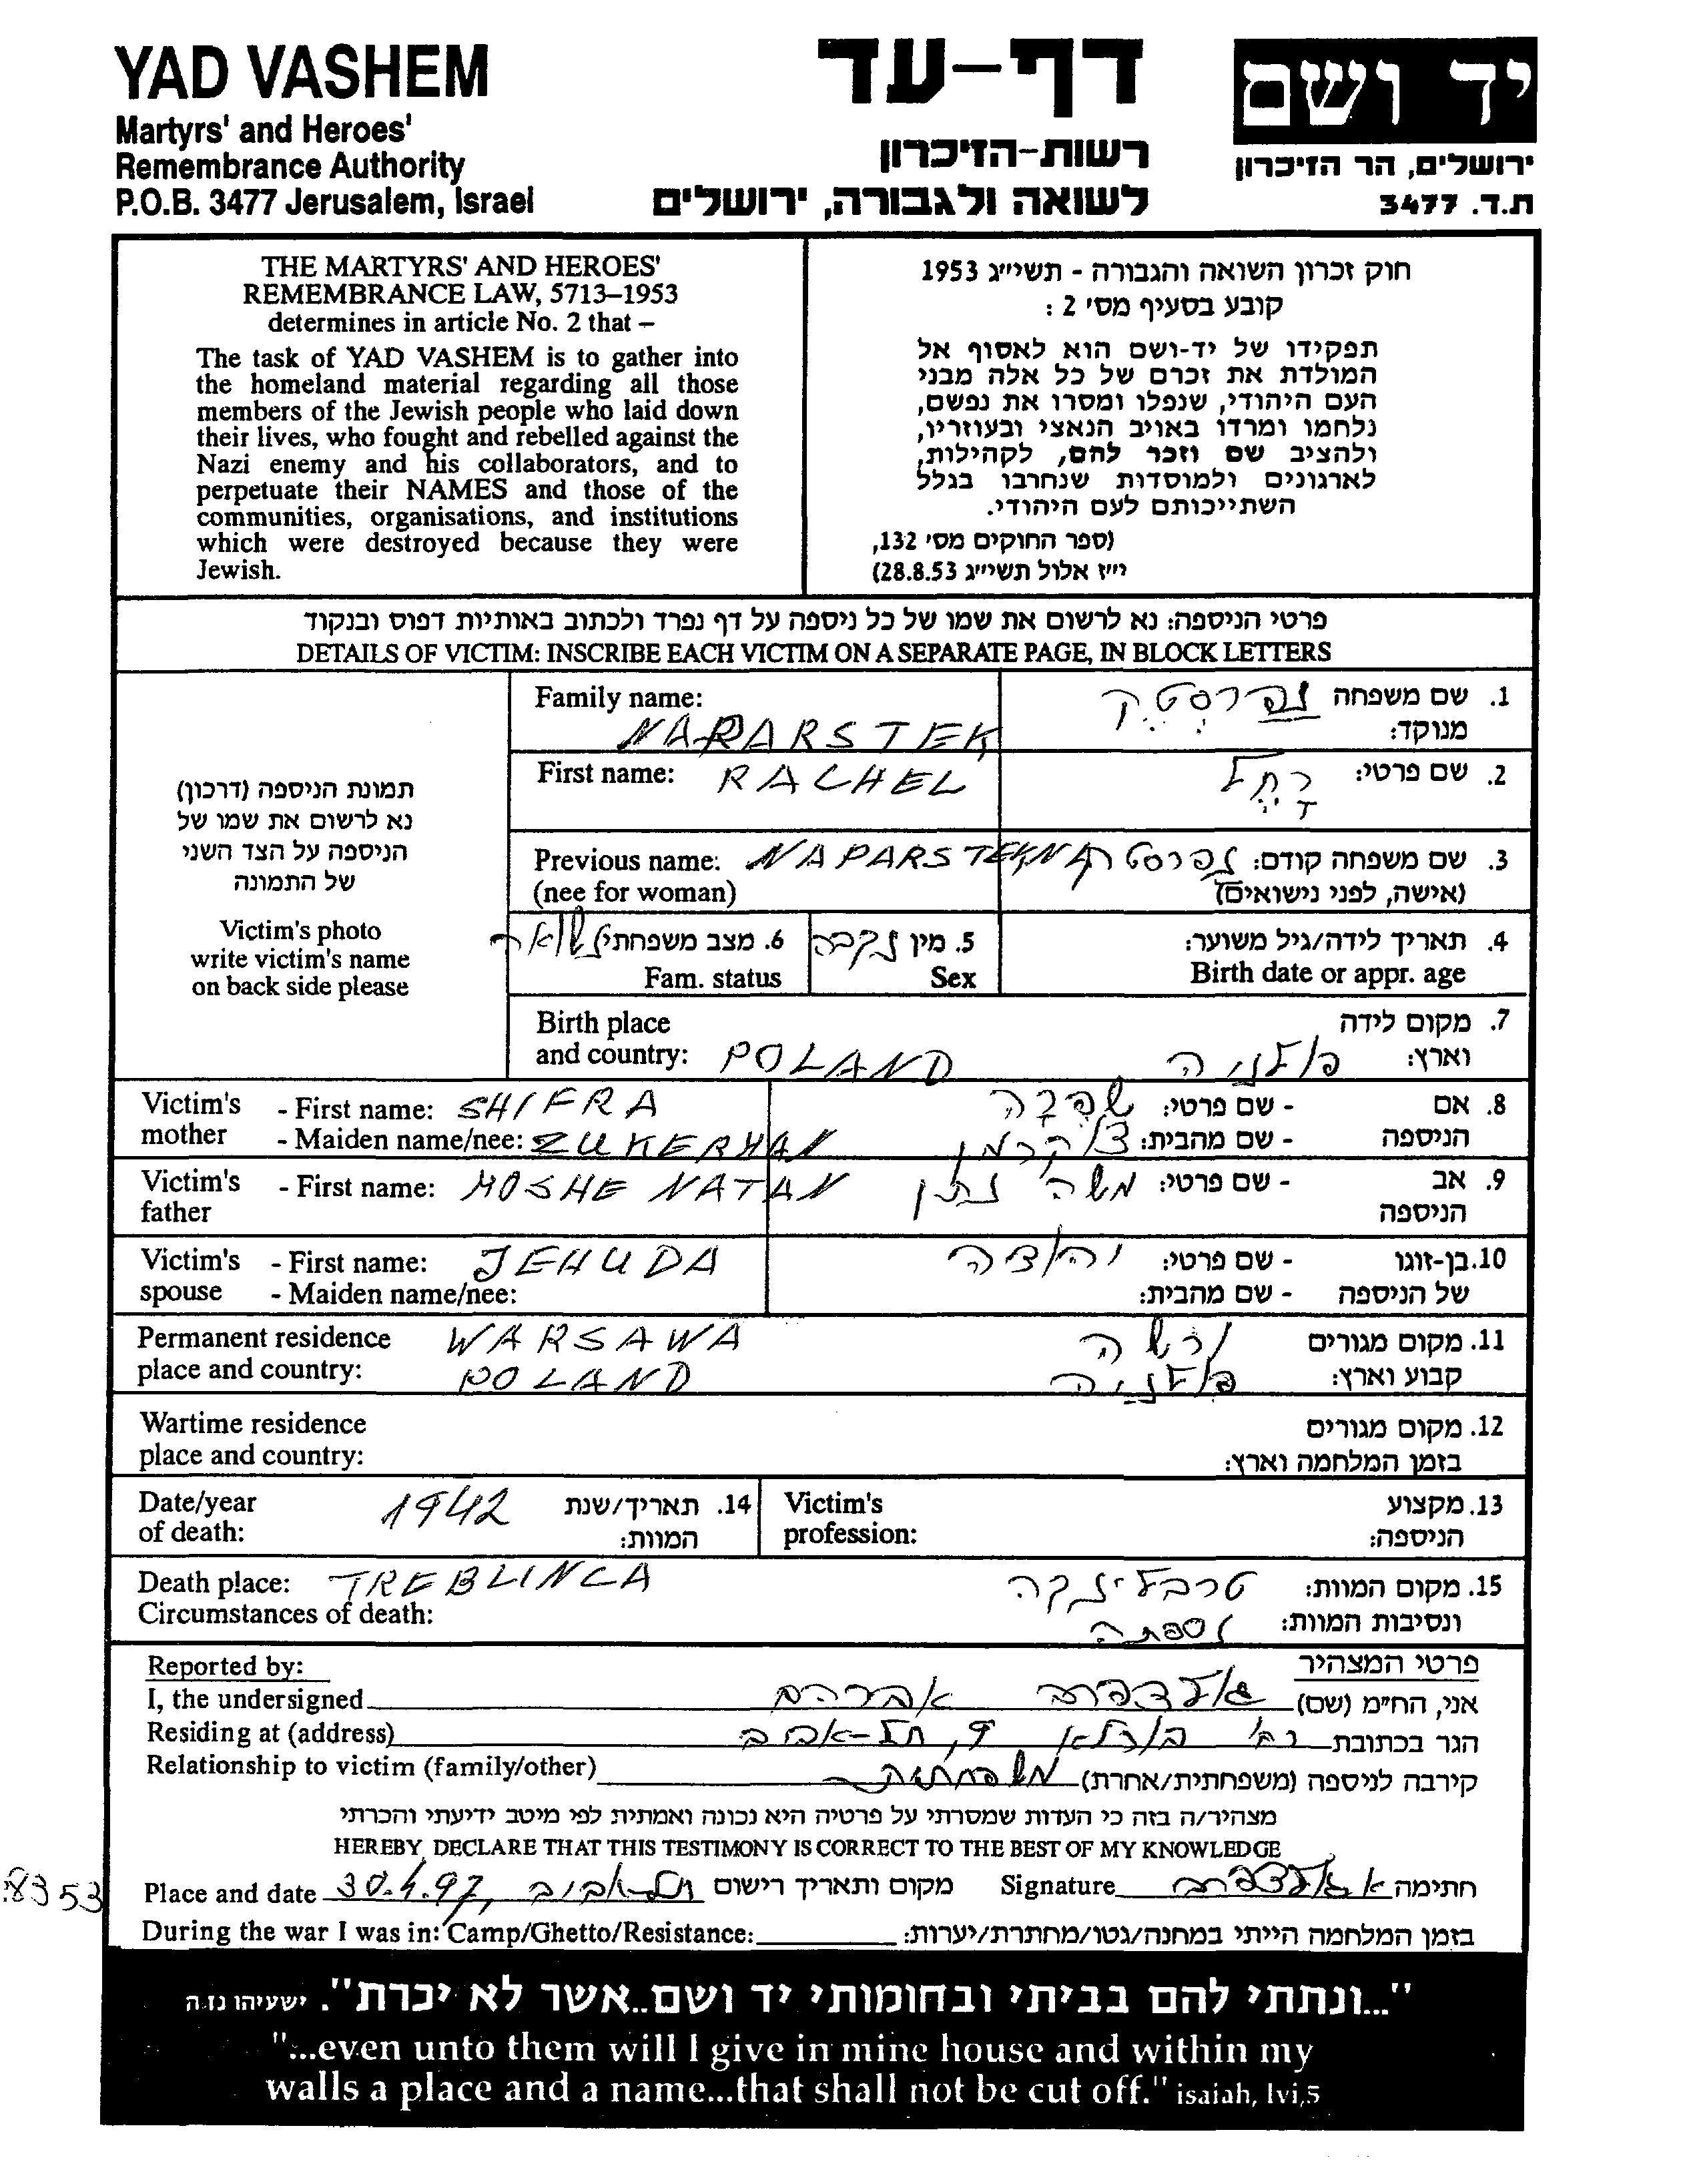 YAD VASHEM
Martyrs' and Heroes'
Remembrance Authority
P.O.B. 3477 Jerusalem, Israel
דף-עד
רשות-הזיכרון
לשואה ולגבורה, ירושלים
יד ושם
ירושלים, הר הזיכרון
ת.ד. 3477
THE MARTYRS' AND HEROES'
REMEMBRANCE LAW, 5713–1953
determines in article No. 2 that –
The task of YAD VASHEM is to gather into
the homeland material regarding all those
members of the Jewish people who laid down
their lives, who fought and rebelled against the
Nazi enemy and his collaborators, and to
perpetuate their NAMES and those of the
communities, organisations, and institutions
which were destroyed because they were
Jewish.
חוק זכרון השואה והגבורה - תשי״ג 1953
קובע בסעיף מס' 2 :
תפקידו של יד-ושם הוא לאסוף אל
המולדת את זכרם של כל אלה מבני
העם היהודי, שנפלו ומסרו את נפשם,
נלחמו ומרדו באויב הנאצי ובעוזריו,
ולהציב שם וזכר להם, לקהילות,
לארגונים ולמוסדות שנחרבו בגלל
השתייכותם לעם היהודי.
(ספר החוקים מס' 132,
י״ז אלול תשי״ג 28.8.53)
פרטי הניספה: נא לרשום את שמו של כל ניספה על דף נפרד ולכתוב באותיות דפוס ובנקוד
DETAILS OF VICTIM: INSCRIBE EACH VICTIM ON A SEPARATE PAGE, IN BLOCK LETTERS
תמונת הניספה (דרכון)
נא לרשום את שמו של
הניספה על הצד השני
של התמונה
Victim's photo
write victim's name
on back side please
Family name: NAPARSTEK
1. שם משפחה מנוקד: נפרסטק
First name: RACHEL
2. שם פרטי: רחל
Previous name: NAPARSTEK
(nee for woman)
3. שם משפחה קודם: נפרסטק
(אישה, לפני נישואים)
4. תאריך לידה/גיל משוער:
Birth date or appr. age
5. מין נקבה
Sex
6. מצב משפחתי נשואה
Fam. status
Birth place
and country: POLAND
7. מקום לידה
וארץ: פולניה
Victim's mother - First name: SHIFRA
- Maiden name/nee: ZUKERMAN
8. אם הניספה - שם פרטי: שפרה
- שם מהבית: צוקרמן
Victim's father - First name: MOSHE NATAN
9. אב הניספה - שם פרטי: משה נתן
Victim's spouse - First name: JEHUDA
- Maiden name/nee:
10. בן-זוגו של הניספה - שם פרטי: יהודה
- שם מהבית:
Permanent residence WARSAWA
place and country: POLAND
11. מקום מגורים ורשה
קבוע וארץ: פולניה
Wartime residence
place and country:
12. מקום מגורים
בזמן המלחמה וארץ:
Date/year
of death: 1942
14. תאריך/שנת
המוות:
Victim's
profession:
13. מקצוע
הניספה:
Death place: TREBLINCA
Circumstances of death:
15. מקום המוות: טרבלינקה
ונסיבות המוות: נספתה
Reported by:
פרטי המצהיר
I, the undersigned
אני, הח״מ (שם) גולדפרב אברהם
Residing at (address)
הגר בכתובת תל-אביב
Relationship to victim (family/other)
קירבה לניספה (משפחתית/אחרת) משפחתית
מצהיר/ה בזה כי העדות שמסרתי על פרטיה היא נכונה ואמתית לפי מיטב ידיעתי והכרתי
HEREBY DECLARE THAT THIS TESTIMONY IS CORRECT TO THE BEST OF MY KNOWLEDGE
8353
Place and date 30.4.97, תל-אביב מקום ותאריך רישום
Signature א גולדפרב חתימה
During the war I was in: Camp/Ghetto/Resistance:
בזמן המלחמה הייתי במחנה/גטו/מחתרת/יערות:
"...ונתתי להם בביתי ובחומותי יד ושם..אשר לא יכרת". ישעיהו נז.ה
"...even unto them will I give in mine house and within my
walls a place and a name...that shall not be cut off." isaiah, lvi,5